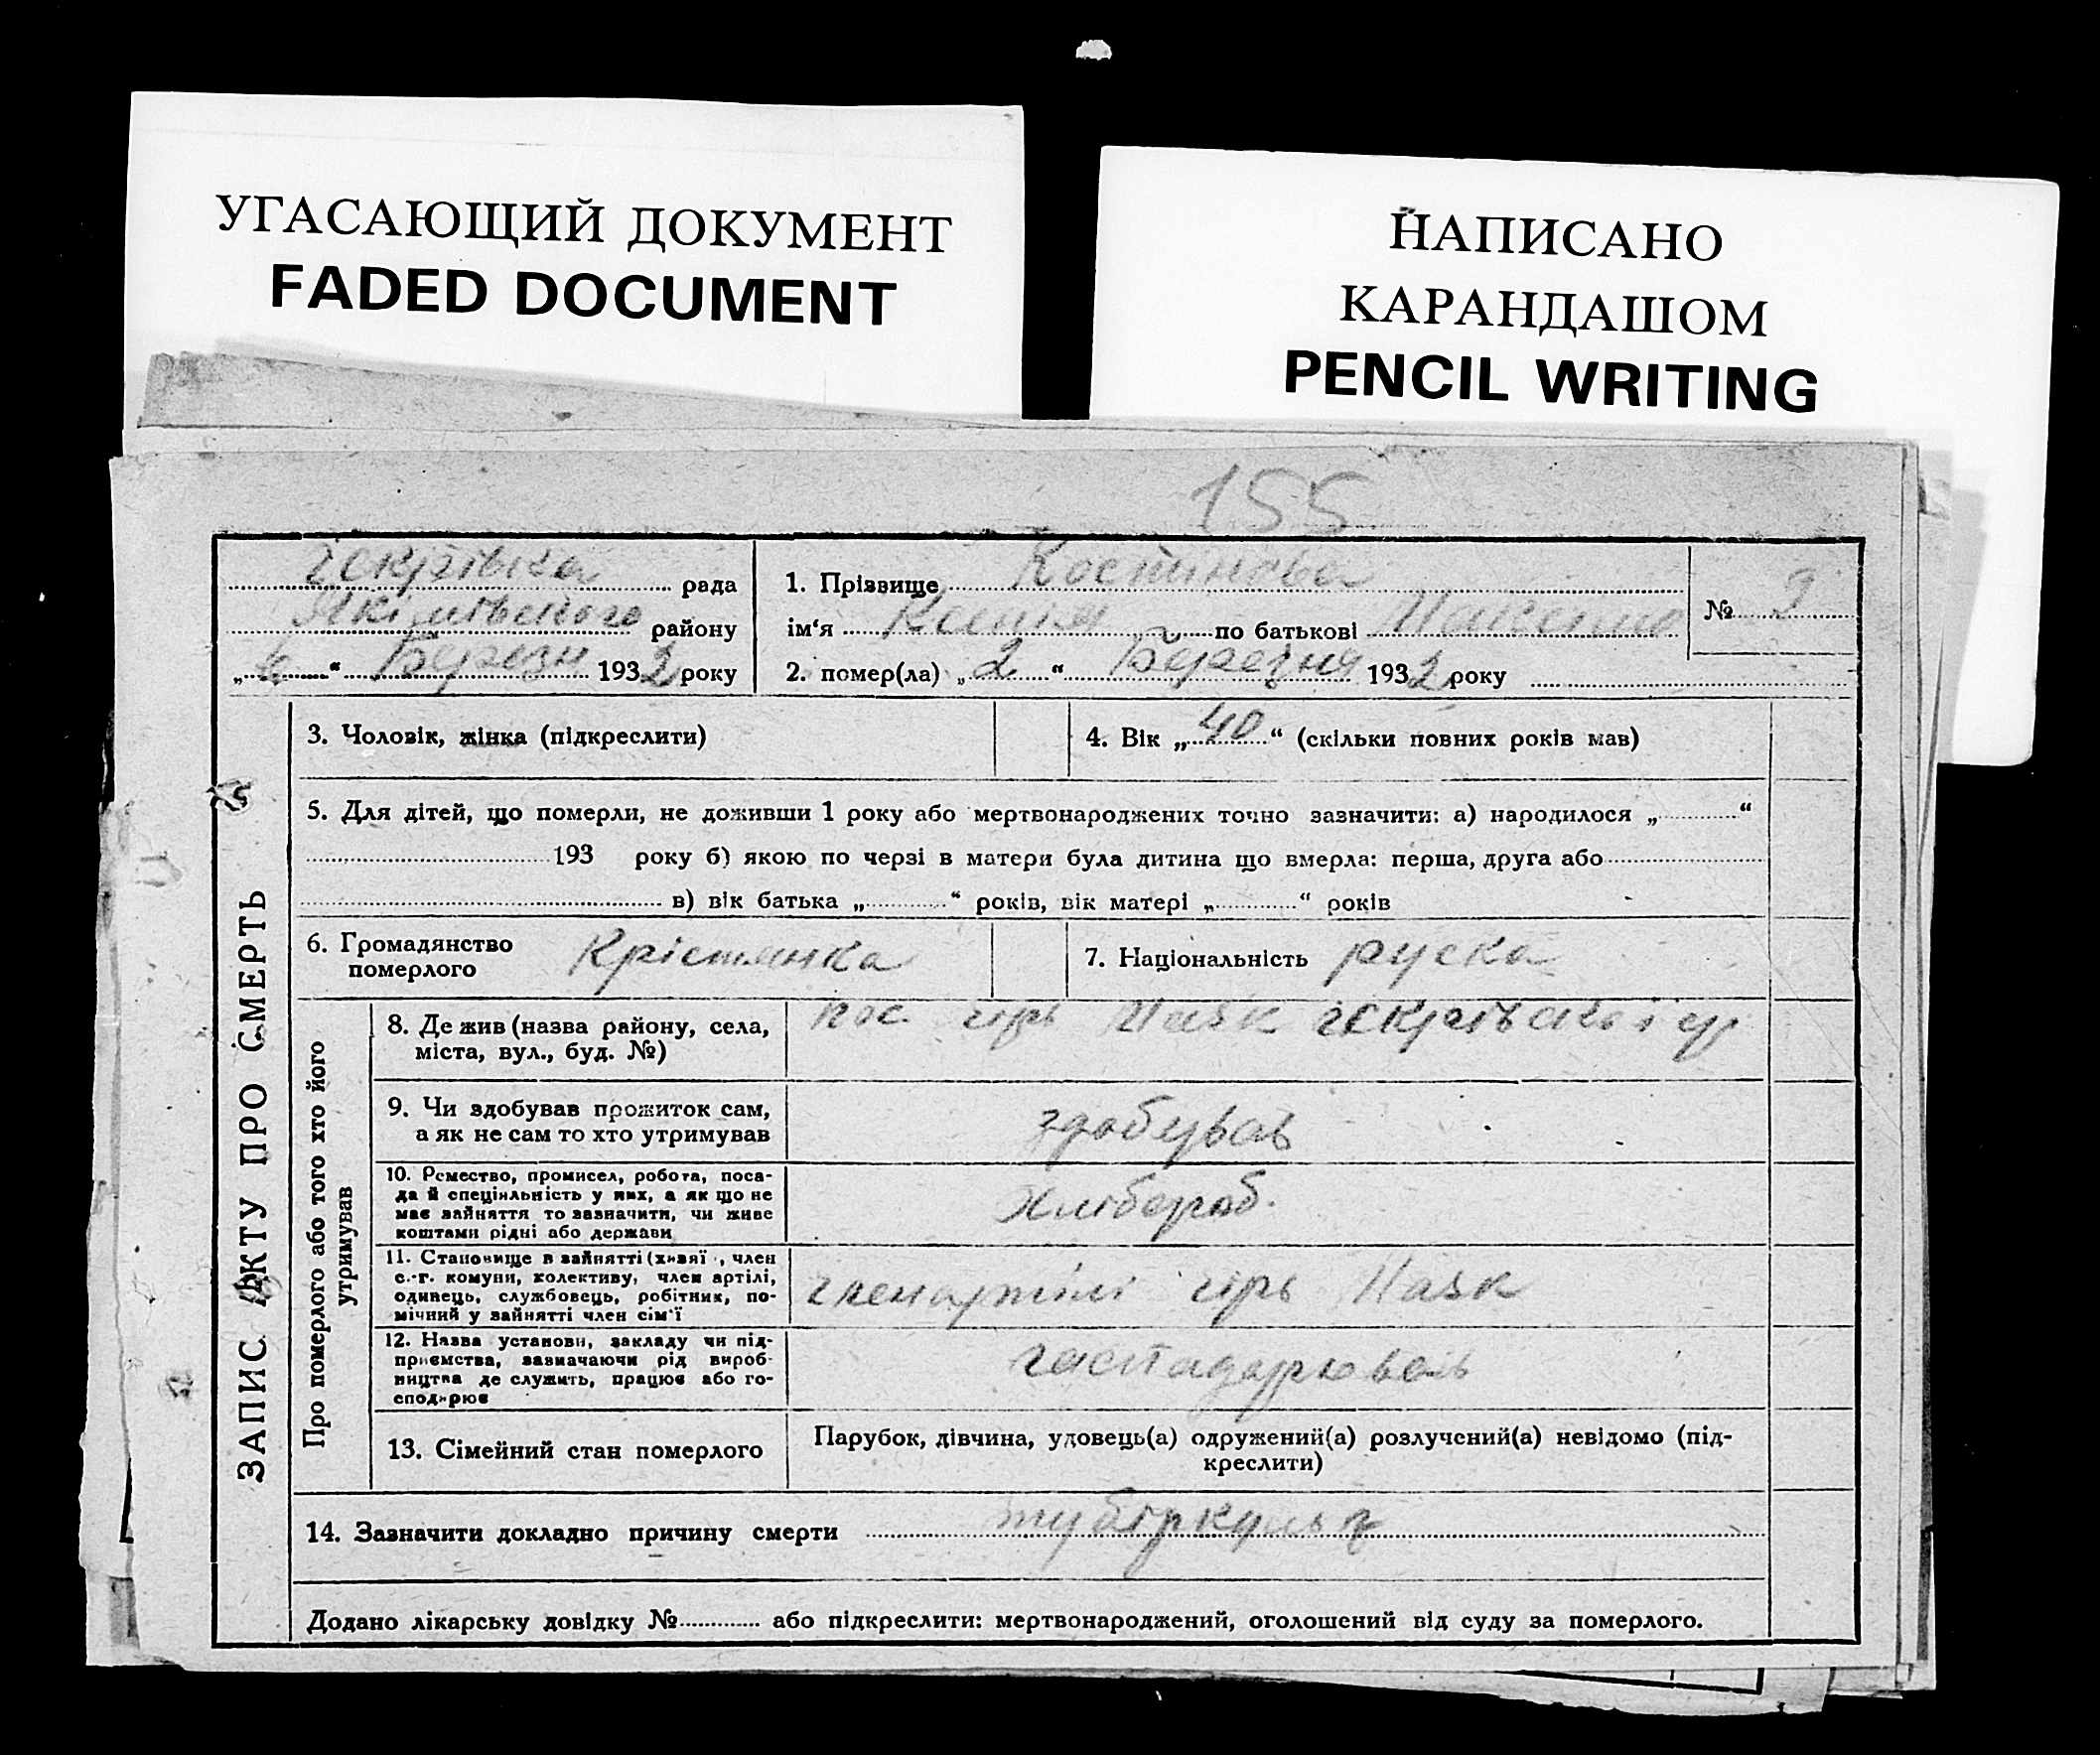 УГАСАЮЩИЙ ДОКУМЕНТ
FADED DOCUMENT
НАПИСАНО
КАРАНДАШОМ
PENCIL WRITING
155
рада
Якімівського району
„6“ Березня 1932 року
1. Прізвище Костинова
ім‘я по батькові
2. помер(ла) „2“ Березня 1932 року
№
ЗАПИС АКТУ ПРО СМЕРТЬ
3. Чоловік, жінка (підкреслити)
4. Вік „40“ (скільки повних років мав)
5. Для дітей, що померли, не доживши 1 року або мертвонароджених точно зазначити: а) народилося „ “
193 року б) якою по черзі в матери була дитина що вмерла: перша, друга або
в) вік батька „ “ років, вік матері „ “ років
6. Громадянство
померлого
Крістянка
7. Національність руска
Про померлого або того хто його
утримував
8. Де жив (назва району, села,
міста, вул., буд. №)
пос. Маяк
9. Чи здобував прожиток сам,
а як не сам то хто утримував
здобував
10. Ремество, промисел, робота, поса-
да й спеціяльність у них, а як що не
має зайняття то зазначити, чи живе
коштами рідні або держави
Хлібороб.
11. Становище в зайнятті (хазяї , член
с.-г. комуни, колективу, член артілі,
одинець, службовець, робітник, по-
мічний у зайнятті член сім‘ї
член артілі Маяк
12. Назва установи, закладу чи під-
приємства, зазначаючи рід вироб-
ництва де служить, працює або го-
сподарює
гаспадарював
13. Сімейний стан померлого
Парубок, дівчина, удовець(а) одружений(а) розлучений(а) невідомо (під-
креслити)
14. Зазначити докладно причину смерти
Додано лікарську довідку № або підкреслити: мертвонароджений, оголошений від суду за померлого.